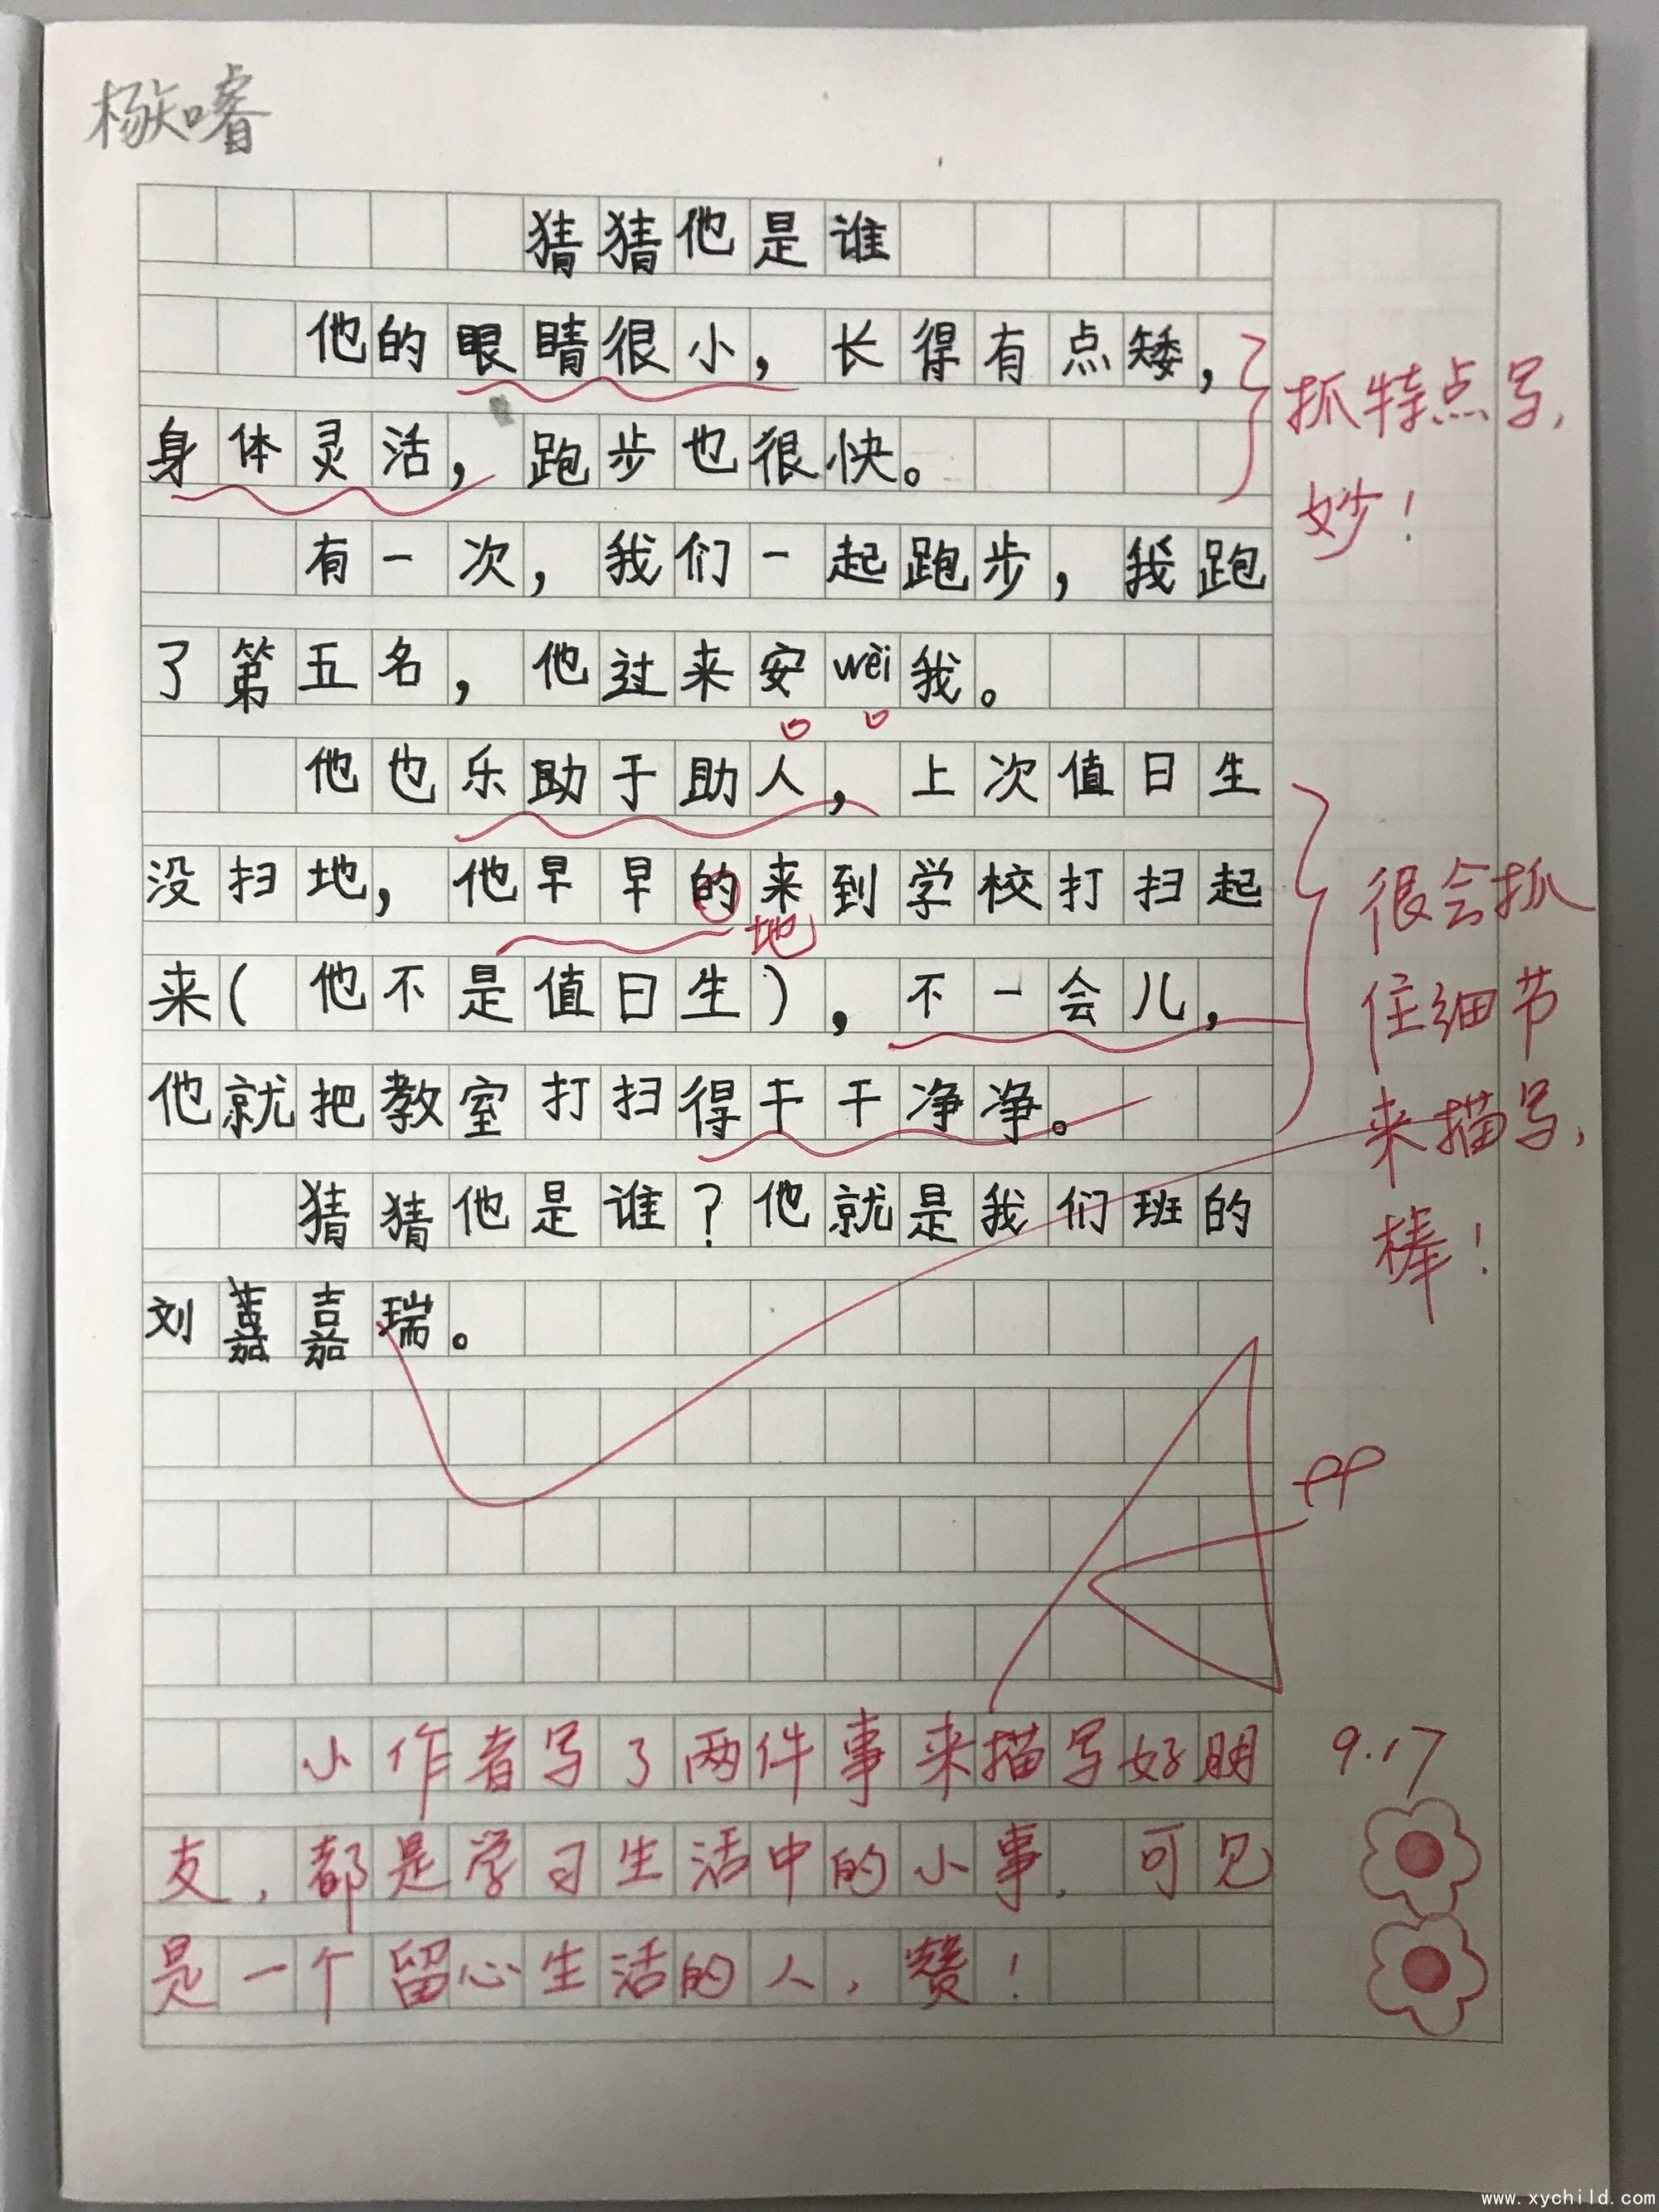 杨矢睿
猜猜他是谁
他的眼睛很小，长得有点矮，
身体灵活，跑步也很快。
抓特点写，
妙！
有一次，我们一起跑步，我跑
了第五名，他过来安wèi我。
他也乐助于助人，上次值日生
没扫地，他早早的来到学校打扫起
地
来（他不是值日生），不一会儿，
他就把教室打扫得干干净净。
很会抓
住细节
来描写，
棒！
猜猜他是谁？他就是我们班的
刘嘉瑞。
A
小作者写了两件事来描写好朋
友，都是学习生活中的小事，可见
是一个留心生活的人，赞！
9.17
www.xychild.com